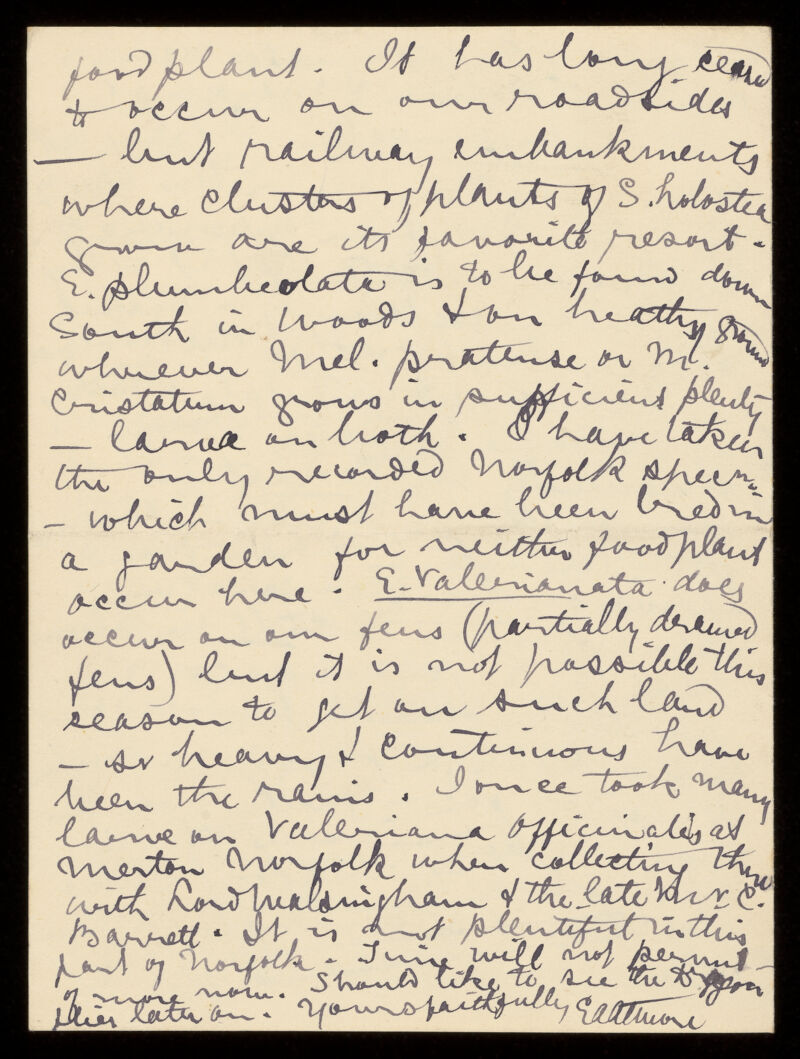 foodplant. It has long ceased
to occur on our roadsides
— but railway embankments
where clusters of plants of S. holostea
grown are its favorite resort.
E. plumbeolata is to be found down
South in woods & on heathy ground
wherever Mel. pratense or M.
cristatum grows in sufficient plenty
— larvae on both. I have taken
the only recorded Norfolk specim:
— which must have been bred in
a garden for neither foodplant
occur here. E. Valerianata does
occur on our fens (partially drained
fens) but it is not possible this
season to get on such land
— so heavy & continuous have
been the rains. I once took many
larvae on Valeriana officinalis at
Merton Norfolk when collecting there
with Lord Walsingham & the late Mr. C.
Barrett. It is not plentiful in this
part of Norfolk. Time will not permit
of more now. Should like to see the
later on. Yours faithfully E A Atmore